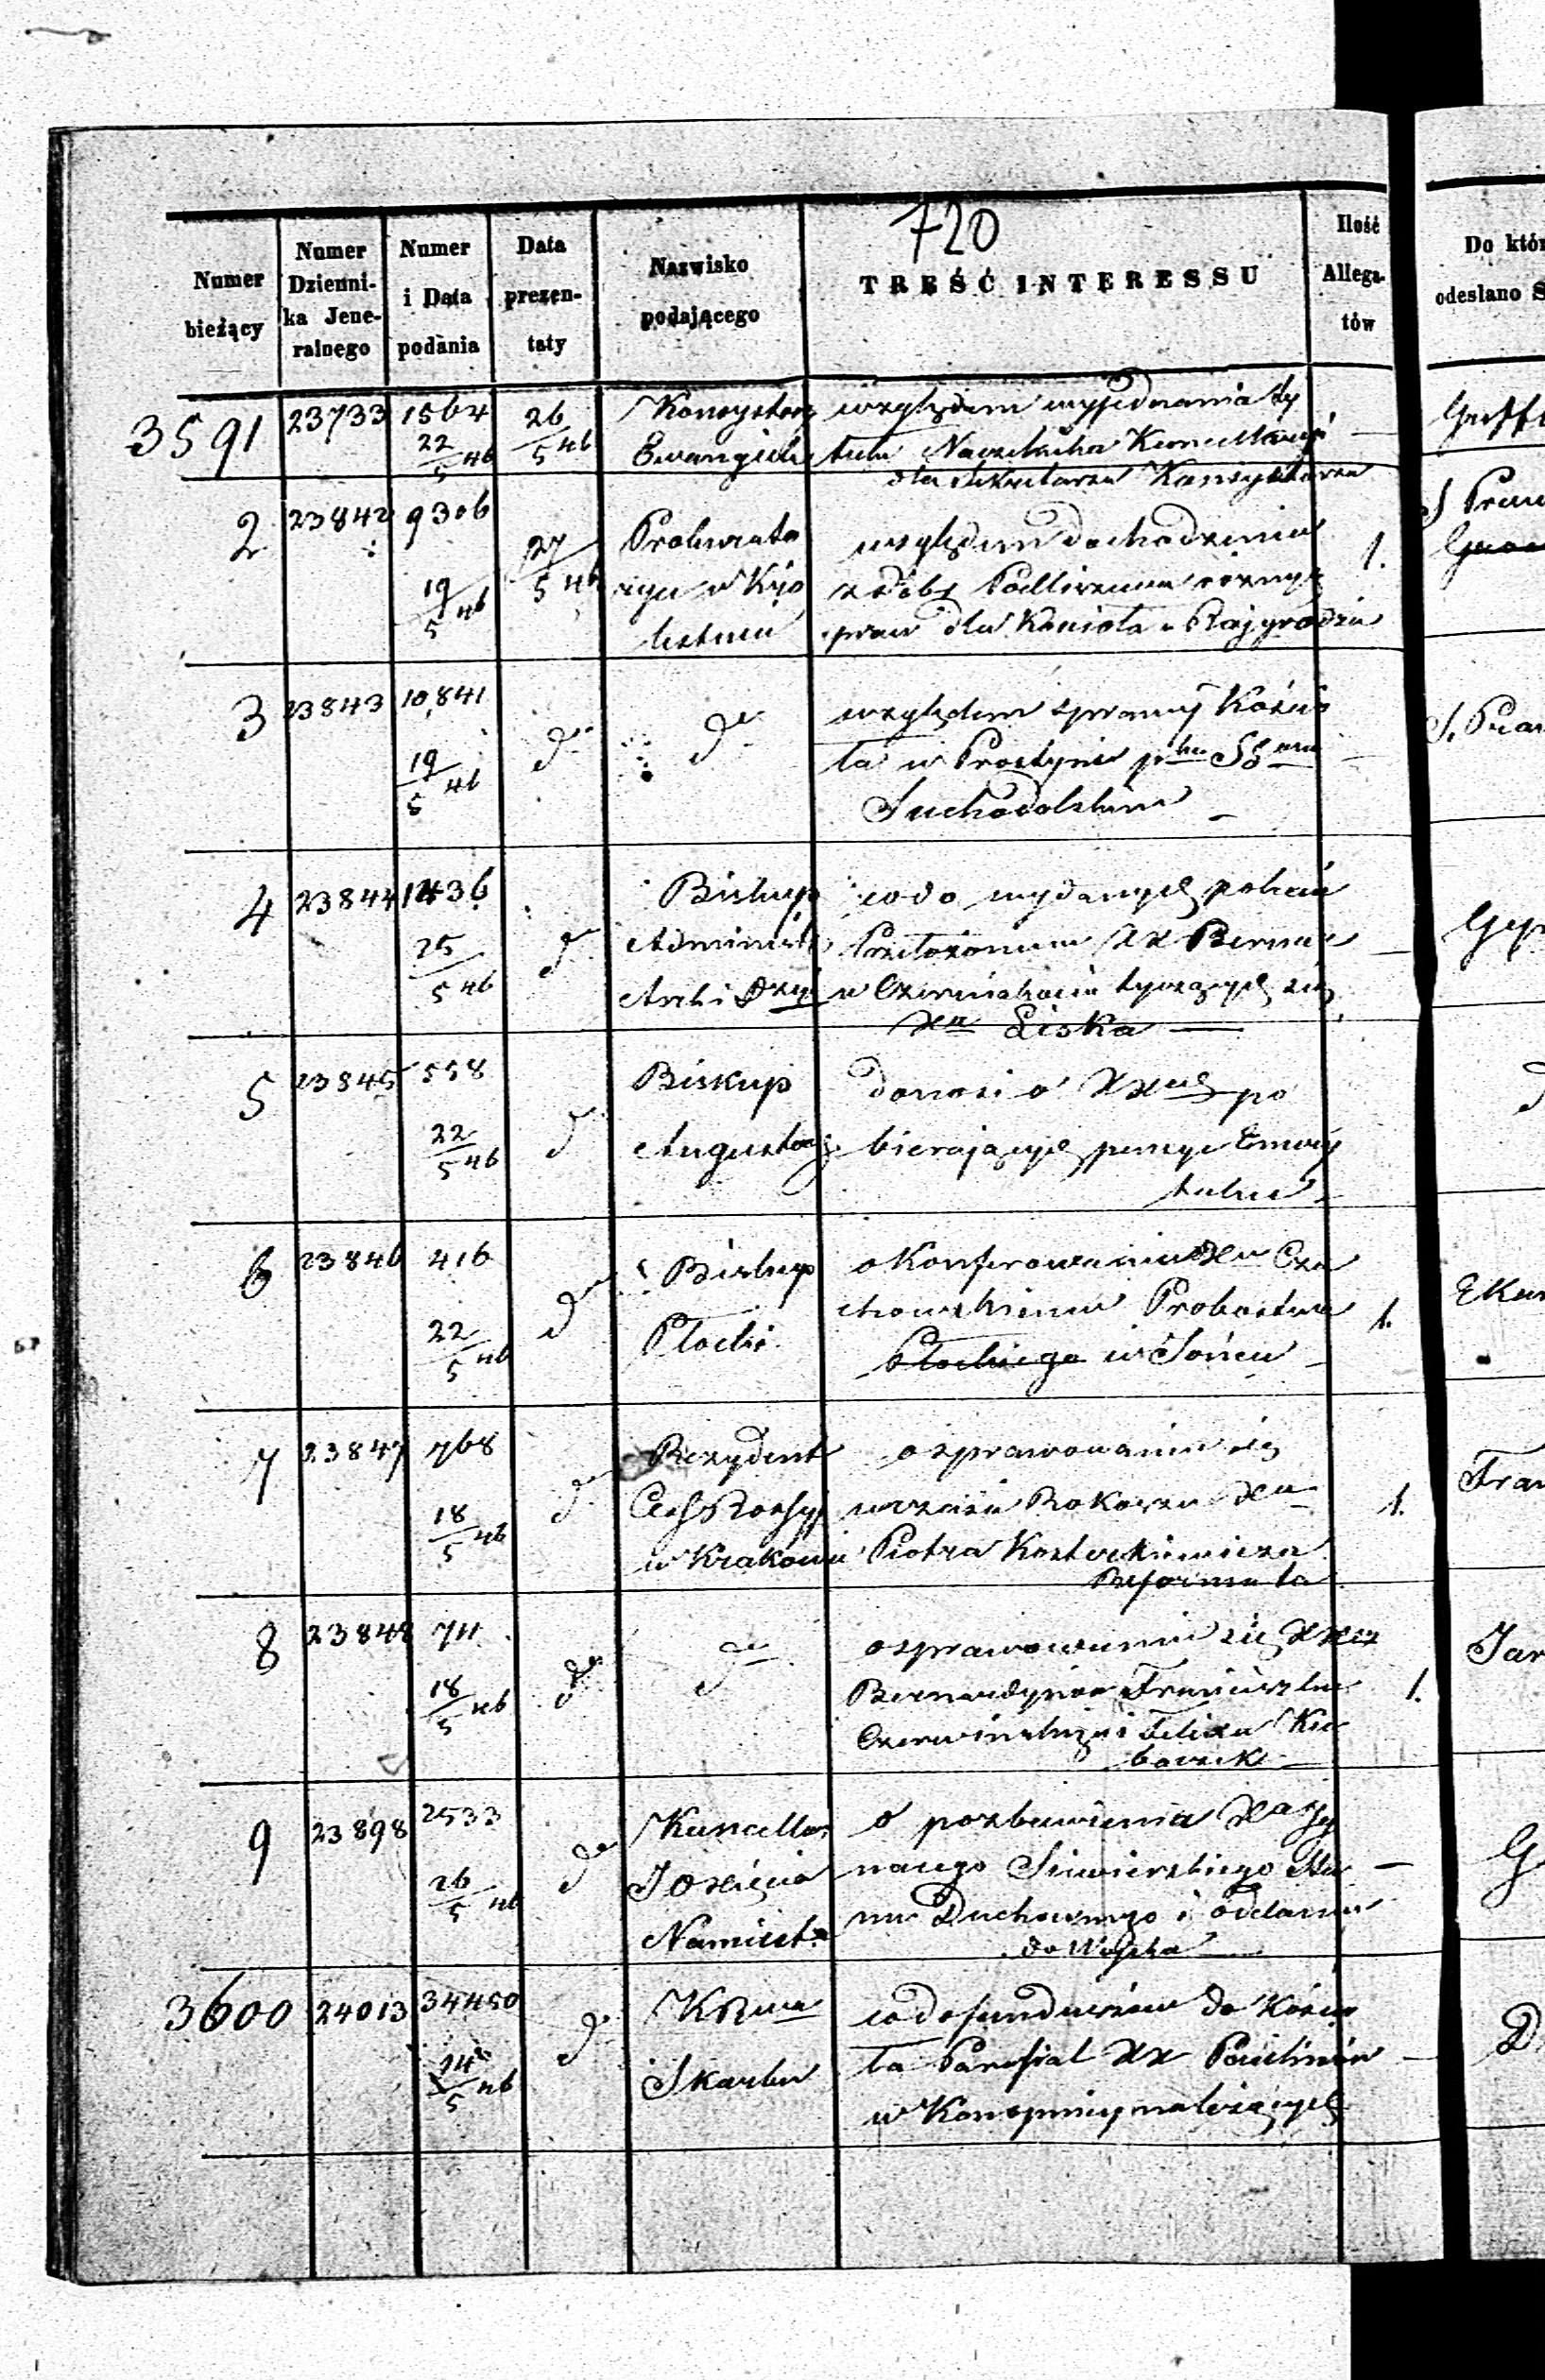 720
Numer bieżący | Numer Dzienni-ka Jene-ralnego | Numer i Data podania | Data prezen-taty | Nazwisko podającego | TREŚĆ INTERESSU | Ilość Allega-tów | Do któr odesłano S
3591 | 23733 | 1564 22/5 46 | 26/5 46 | Konsystorz
Ewangieli
względem wyjednania ty
tułu Naczelnika Kancellaryi —
dla Sekretarza Konsystorza
2 | 23842 | 9306 19/5 46 | 27/5 46 | Prokurato
rya w Kró
lestwie
względem dochodzenia
z dóbr różnych
praw dla Kościoła w Rajgrodzie
1.
S Praw
3 | 23843 | 10,841 19/5 46 | do | do
względem sprawy Kościo
ła w Prostyni
Suchodolskim —
S. Praw
4 | 23844 | 1436 25/5 46 | do | Biskup
Administr
Archi Dyi
co do wydanych poleceń
Przełożonemu XX Bernar
w Czerniakowie tyczących się
Xa Liska —
5 | 23845 | 558 22/5 46 | do | Biskup
Augustows
donosi o XXach po
bierających pensye Emery
talne —
6 | 23846 | 416 22/5 46 | do | Biskup
Płocki
o Konferowaniu Xu Cza
chowskiemu Probostwa
Płockiego w Sońcu —
1.
7 | 23847 | 768 18/5 46 | do | Rezydent
Ces Rossyj
w Krakowie
o sprawowaniu się
w czasie Rokoszu Xa
Piotra Kosterkiewicza
Reformata
1.
Fran
8 | 23848 | 711 18/5 46 | do | do
o sprawowaniu się XXży
Bernardynów Franciszka
Czerwińskiego i Felixa Ku
baczek —
1.
Jar
9 | 23898 | 2533 26/5 46 | do | Kancellar
JO Xięcia
Namiest.
o pozbawienia Xa Igna
nacego Siewierskiego Sta —
nu Duchownego i oddania
do Wojska —
G
3600 | 24013 | 34450 24/5 46 | do | KRwa
Skarbu
co do funduszów do Kościo
ła Parafial XX Paulinów —
w Konopnicy należących
D